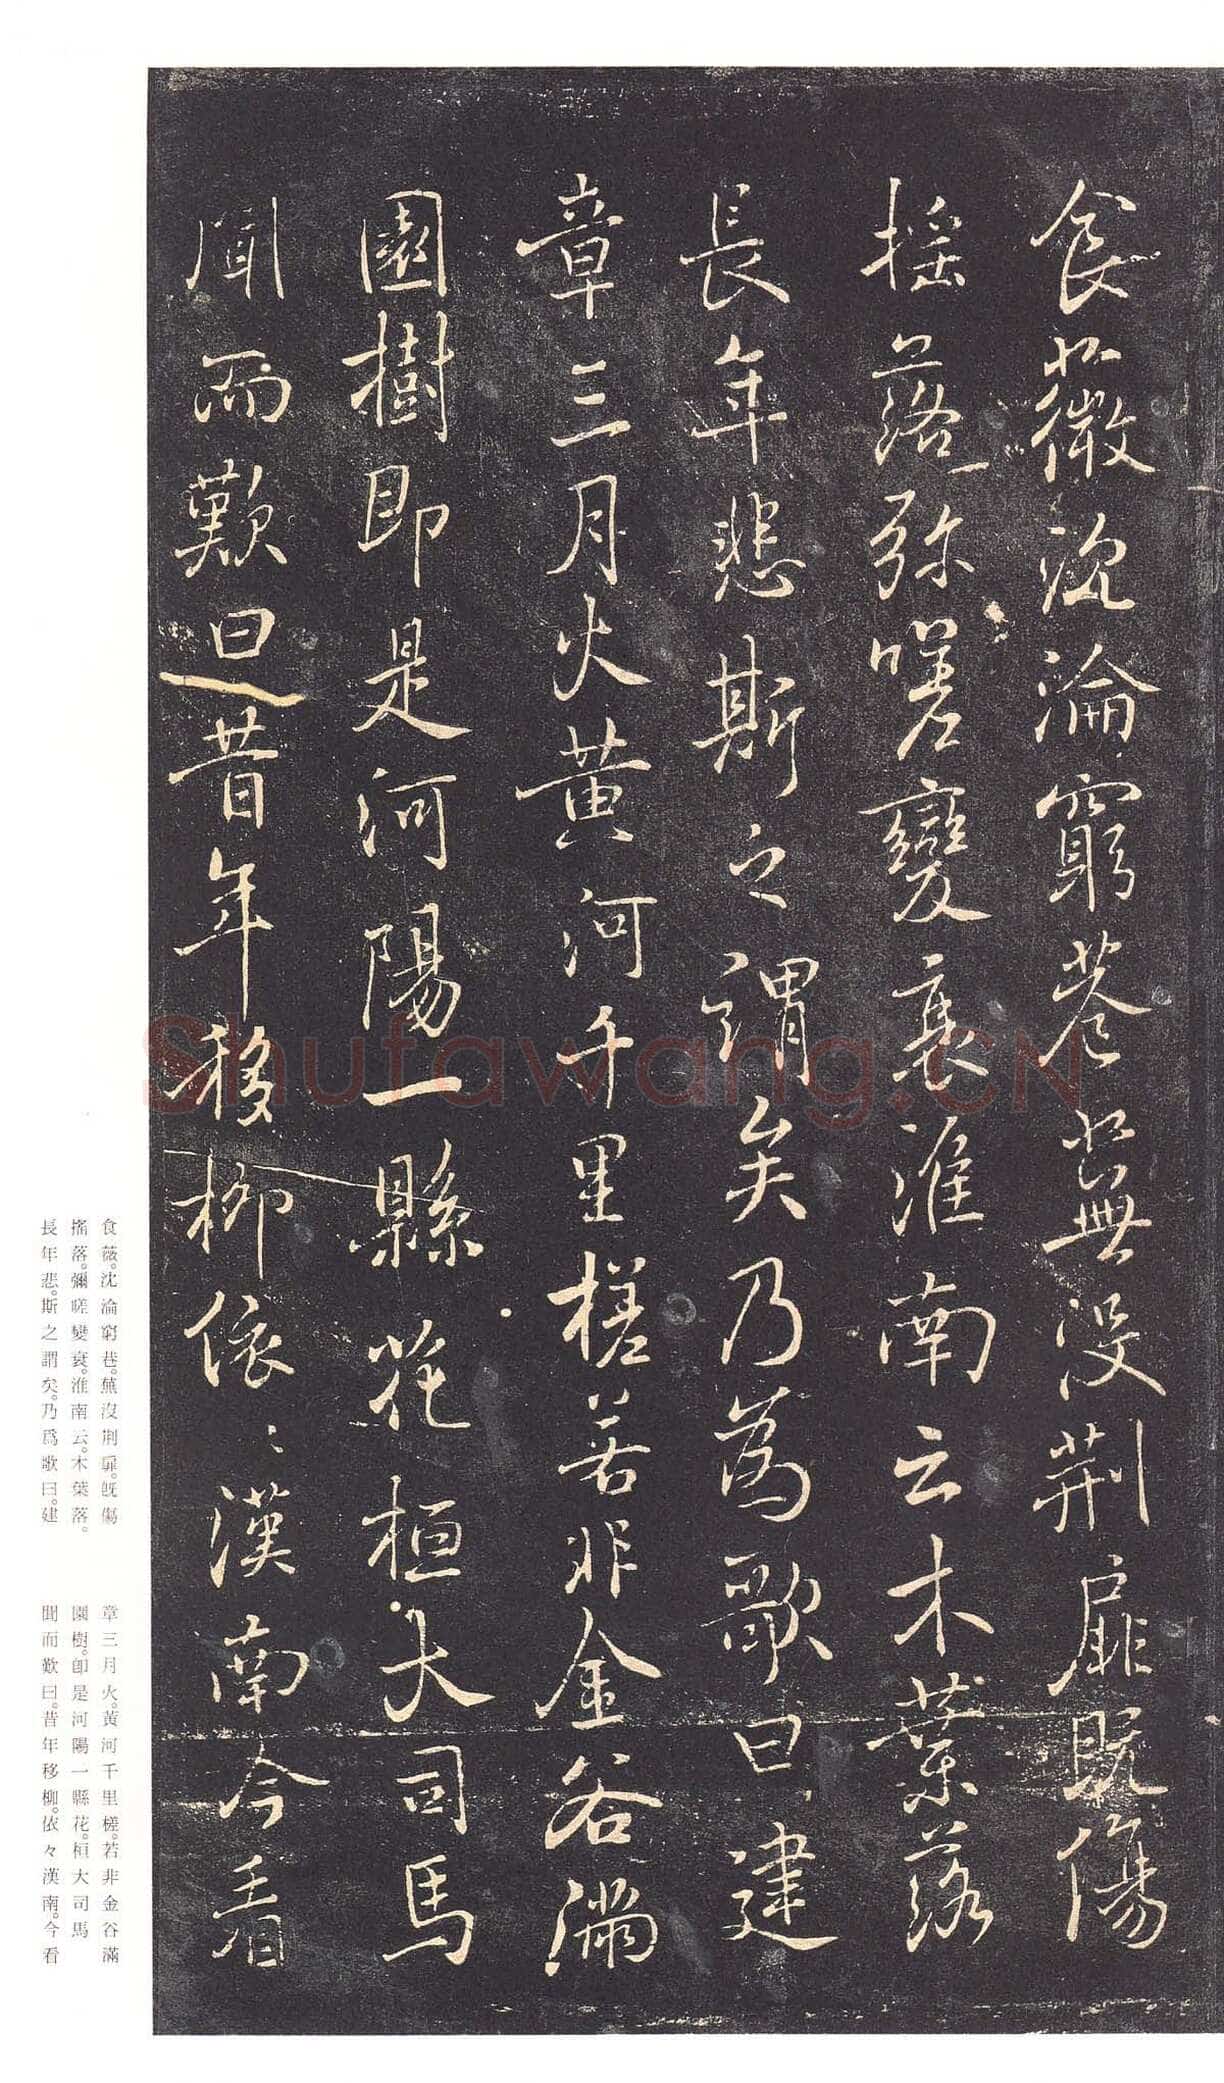 食薇沈淪窮巷蕪没荊扉既傷
搖落弥嗟變衰淮南云木葉落
長年悲斯之謂矣乃為歌曰建
章三月火黃河千里槎若非金谷滿
園樹即是河陽一縣花桓大司馬
聞而歎曰昔年移柳依〻漢南今看
食薇。沈淪窮巷。蕪沒荆扉。旣傷
搖落。彌嗟變衰。淮南云。木葉落。
長年悲。斯之謂矣。乃爲歌曰。建
章三月火。黃河千里槎。若非金谷滿
園樹。卽是河陽一縣花。桓大司馬
聞而歎曰。昔年移柳。依々漢南。今看
Shufawang.CN